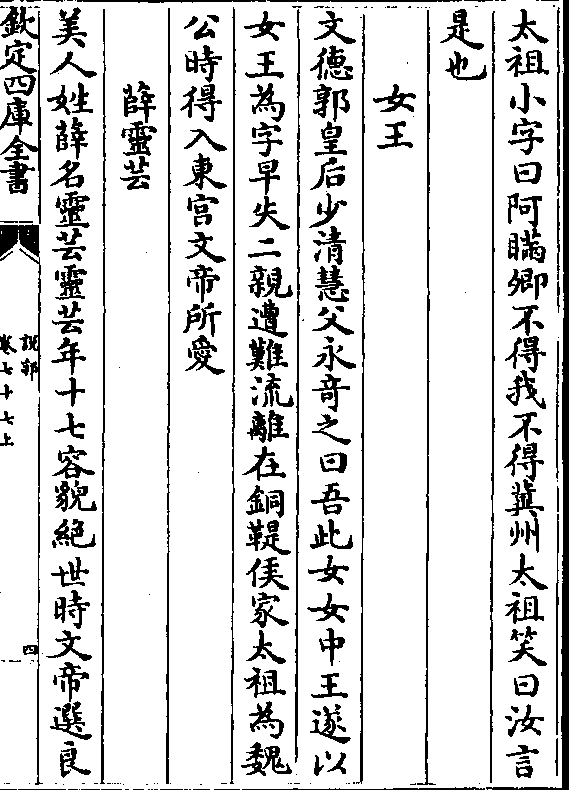 太祖小字曰阿瞞卿不得我不得冀州太祖笑曰汝言
是也
女王
文德郭皇后少清慧父永奇之曰吾此女女中王遂以
女王為字早失二親遭難流離在銅鞮侯家太祖為魏
公時得入東宮文帝所愛
薛靈芸
美人姓薛名靈芸靈芸年十七容貌絶世時文帝選良
欽定四庫全書
說郛
卷七十七上
四